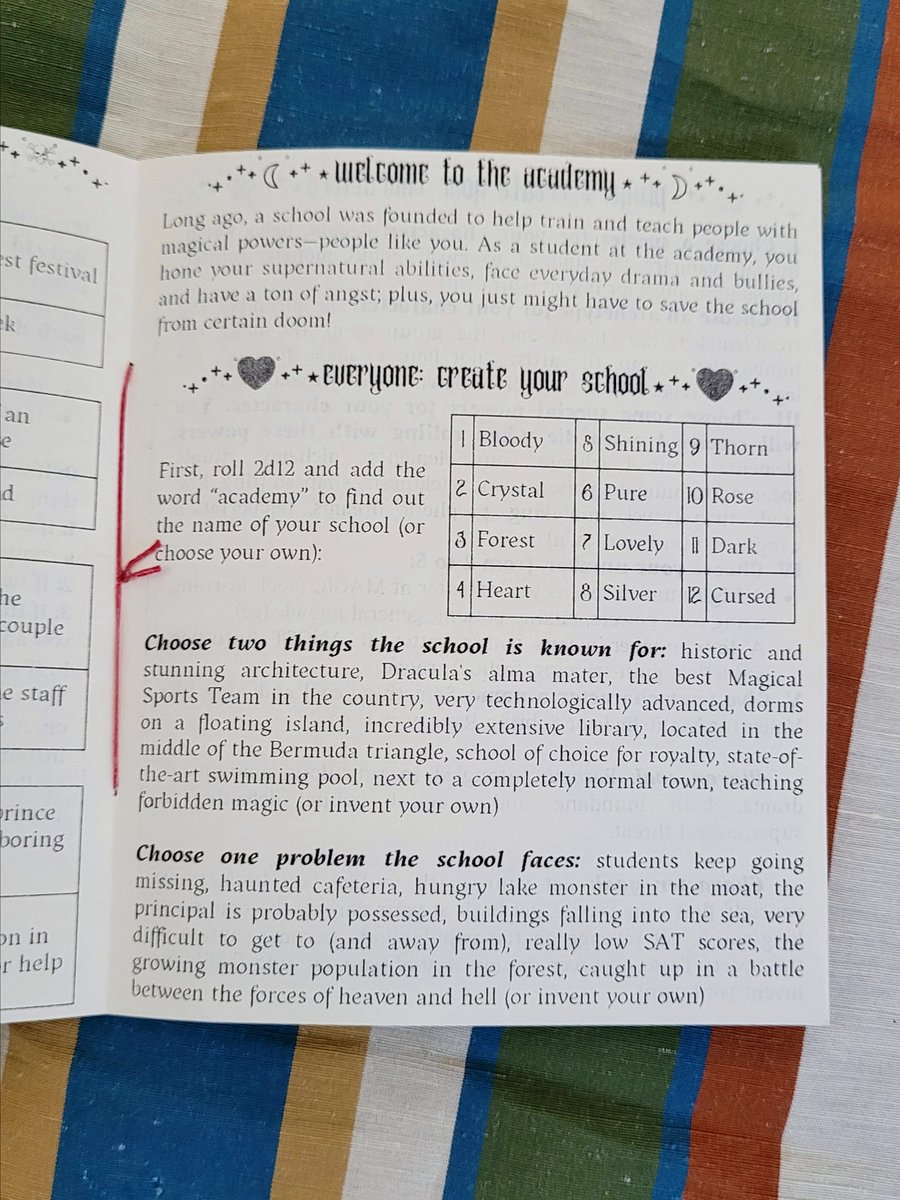 est festival
k
an
e
d
he
couple
e staff
s
prince
boring
on in
r help
welcome to the academy
Long ago, a school was founded to help train and teach people with
magical powers—people like you. As a student at the academy, you
hone your supernatural abilities, face everyday drama and bullies,
and have a ton of angst; plus, you just might have to save the school
from certain doom!
everyone: create your school
First, roll 2d12 and add the
word “academy” to find out
the name of your school (or
choose your own):
1 Bloody 5 Shining 9 Thorn
2 Crystal 6 Pure 10 Rose
3 Forest 7 Lovely 11 Dark
4 Heart 8 Silver 12 Cursed
Choose two things the school is known for: historic and
stunning architecture, Dracula's alma mater, the best Magical
Sports Team in the country, very technologically advanced, dorms
on a floating island, incredibly extensive library, located in the
middle of the Bermuda triangle, school of choice for royalty, state-of-
the-art swimming pool, next to a completely normal town, teaching
forbidden magic (or invent your own)
Choose one problem the school faces: students keep going
missing, haunted cafeteria, hungry lake monster in the moat, the
principal is probably possessed, buildings falling into the sea, very
difficult to get to (and away from), really low SAT scores, the
growing monster population in the forest, caught up in a battle
between the forces of heaven and hell (or invent your own)